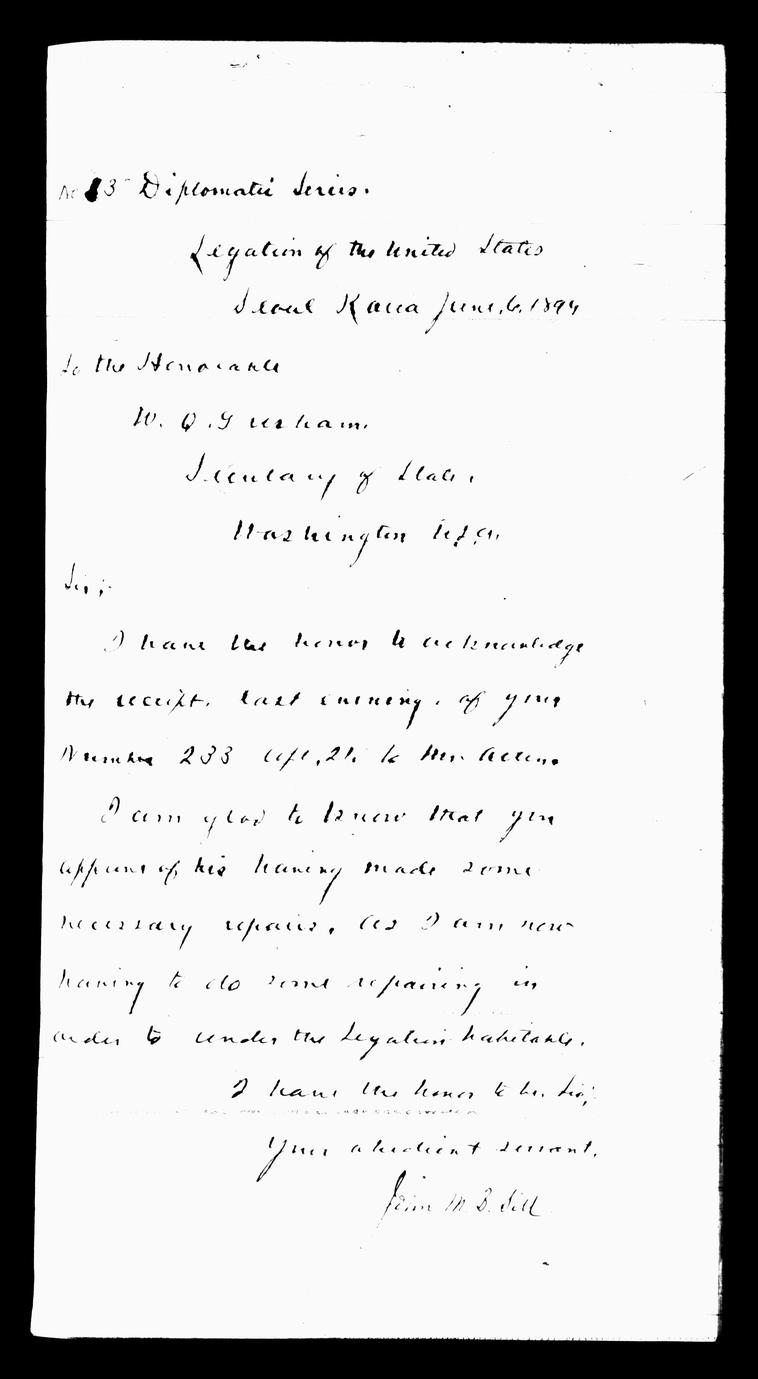 No 3 Diplomatic Series.
Legation of the United States
Seoul Korea June, 6, 1894
To the Honorable
W. Q. Gresham.
Secretary of State.
Washington U.S.A.
Sir;
I have the honor to acknowledge
the receipt, last evening, of your
Number 233 to Mr. Allen.
I am glad to know that you
approve of his having made some
necessary repairs, as I am now
having to do some repairing in
order to render the Legation habitable.
I have the honor to be. Sir;
Your obedient servant.
John M. B. Sill